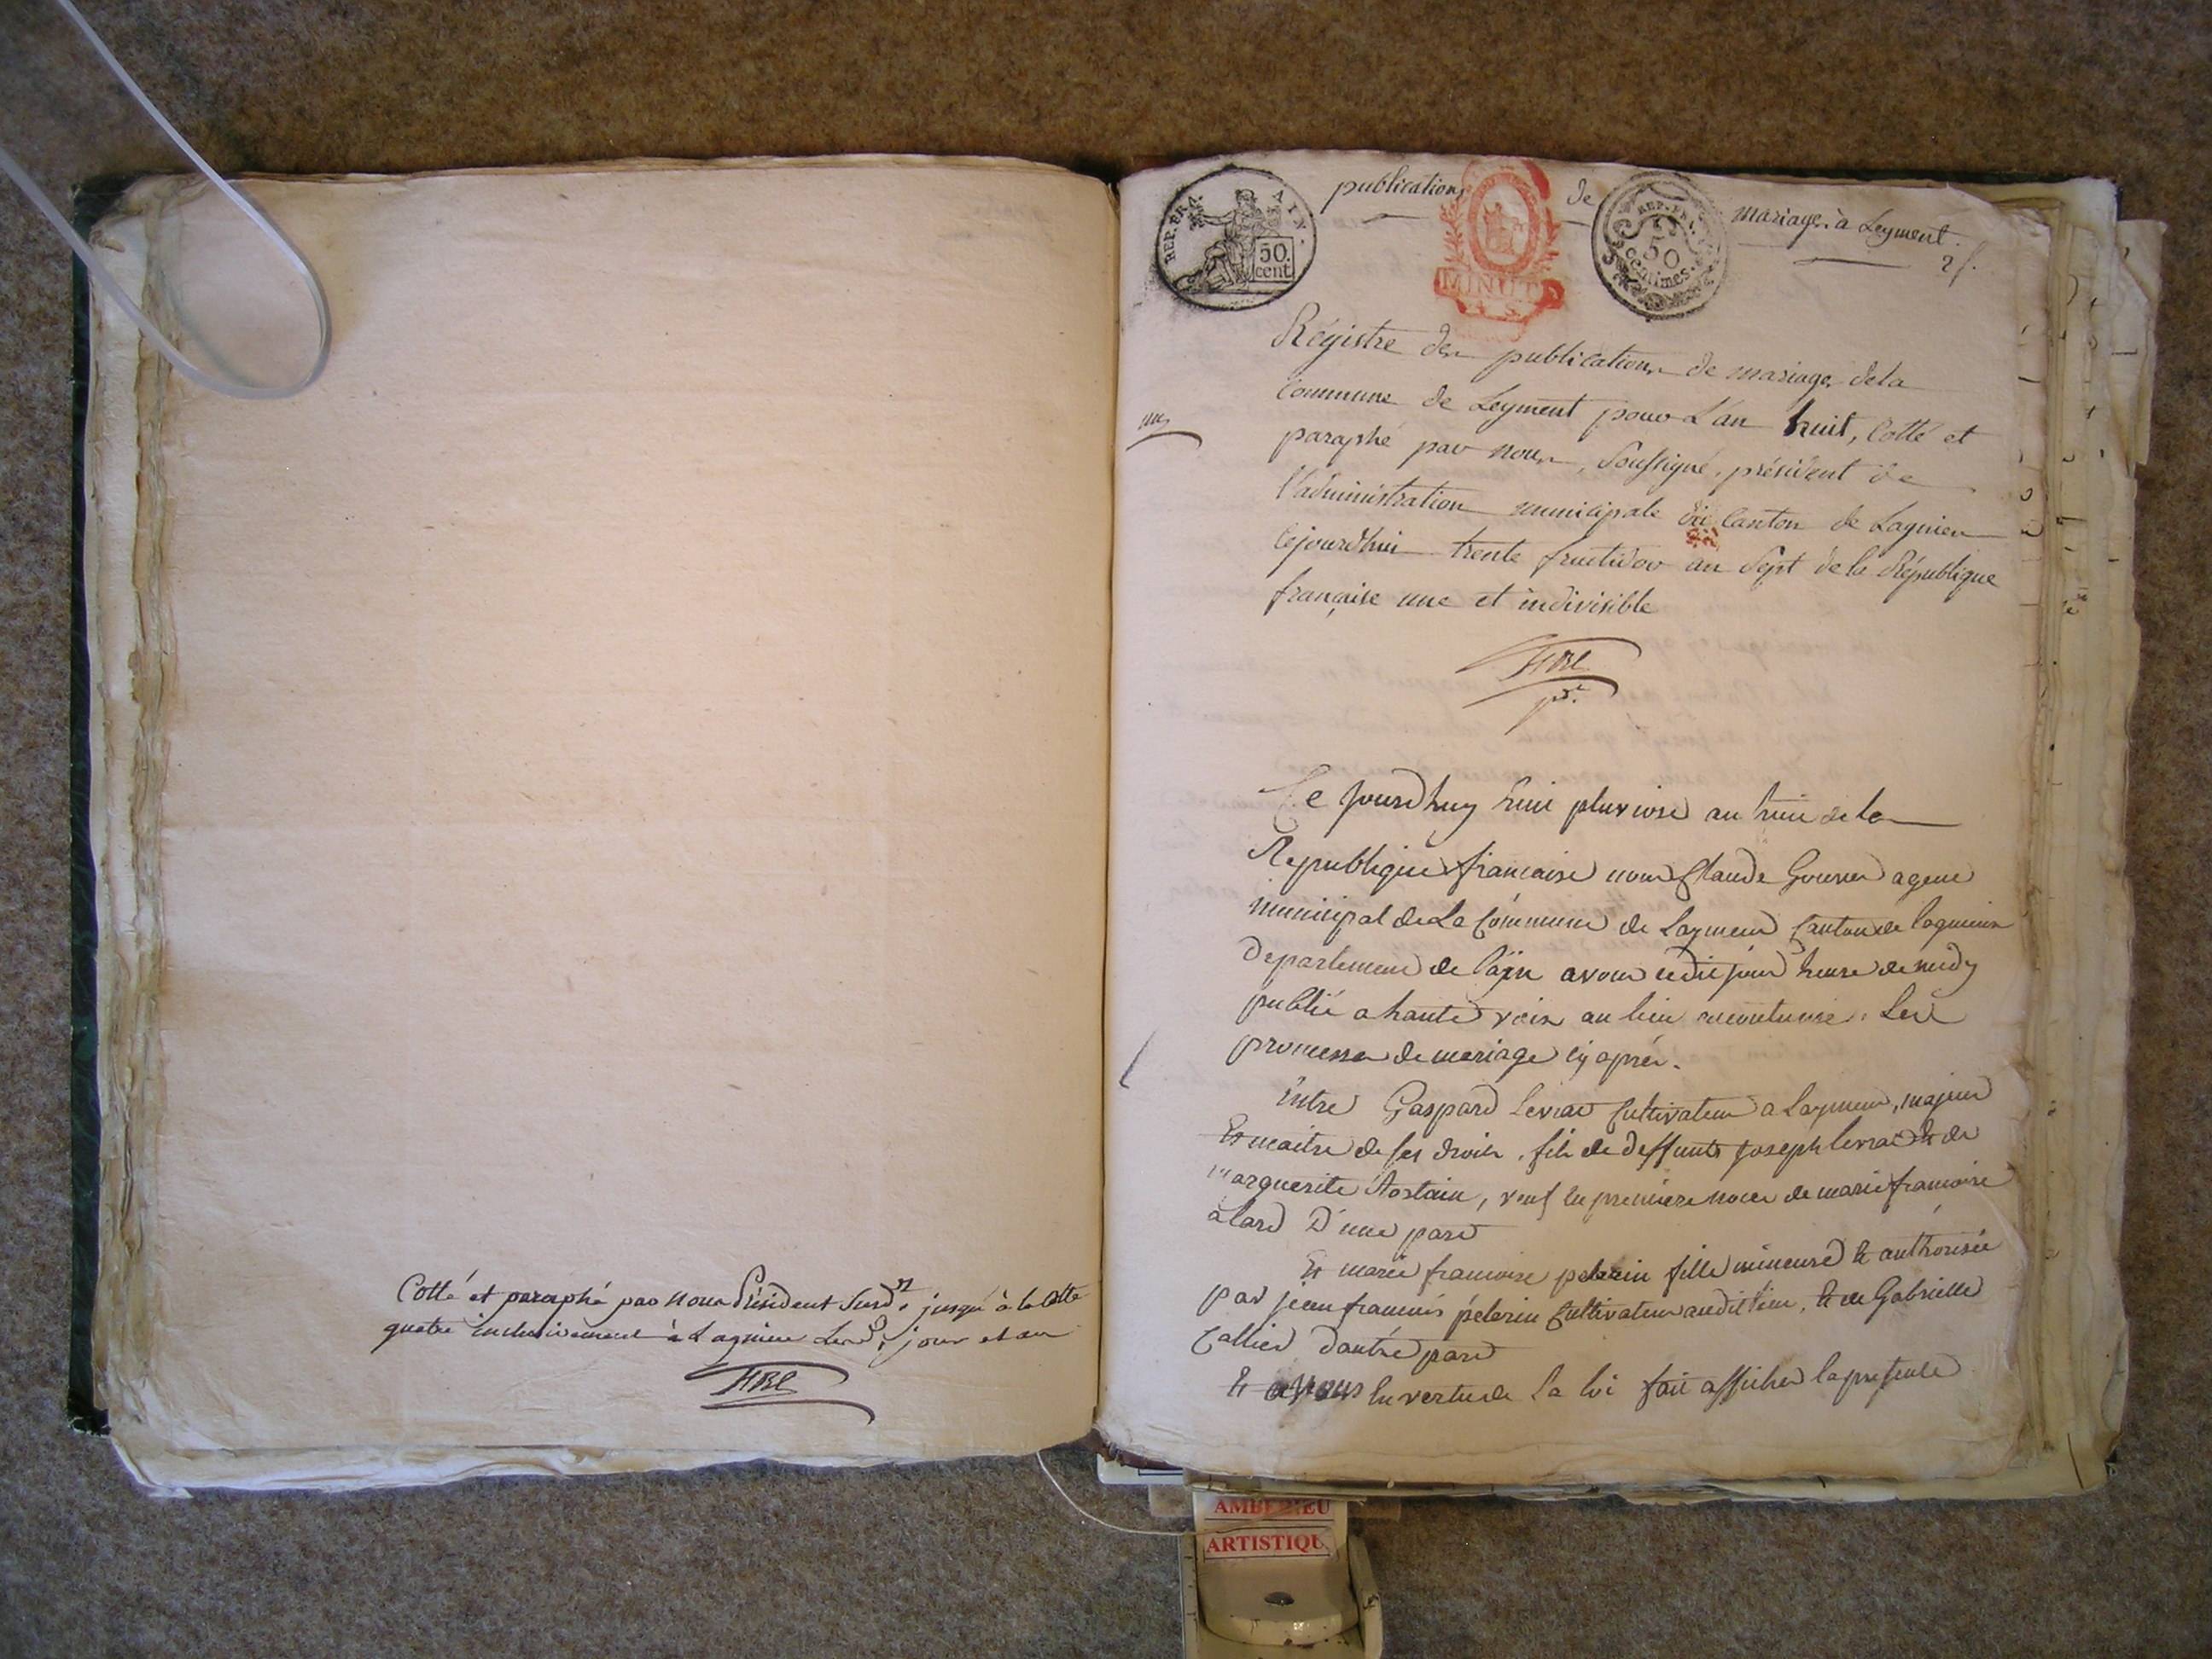 Cotté et paraphé par nous Président susd. jusqu'à la cotte
quatre inclusivement à Lagnieu lesd. jour et an
publication de mariage à Leyment.
2 f.
REP. FRA. AIN.
50 cent
MINUT
REP. FRA.
50 centimes.
Régistre des publications de mariage dela
Commune de Leyment pour L'an huit, Cotté et
une
paraphé par nous, soussigné, président de
l'administration municipale du Canton de Lagnieu
Cejourdhui trente fructidor an sept de la République
française une et indivisible
pdt.
Ce jourdhuy huit pluviose an huit de la
Republique francaise nous Claude agent
municipal de La Commune de Laymend Canton de lagnieu
Departement de l'ain avons cedit jour heure de midy
publié a haute voix au lieu accoutumé. Les
promesses de mariage cy aprés.
Entre Gaspard levrat Cultivateur a Laymend, majeur
Et maitre de ses droits, fils de deffunts Joseph levrat Et de
marguerite, veuf en premiere noces de marie francoise
alard D'une part
Et marie francoise pelerin fille mineure Et authorisée
par jean francois pélerin Cultivateur audit lieu, Et de Gabrielle
Callied dautre part
Et avons En vertu de La loi fait afficher la presente
AMBERIEU
ARTISTIQU